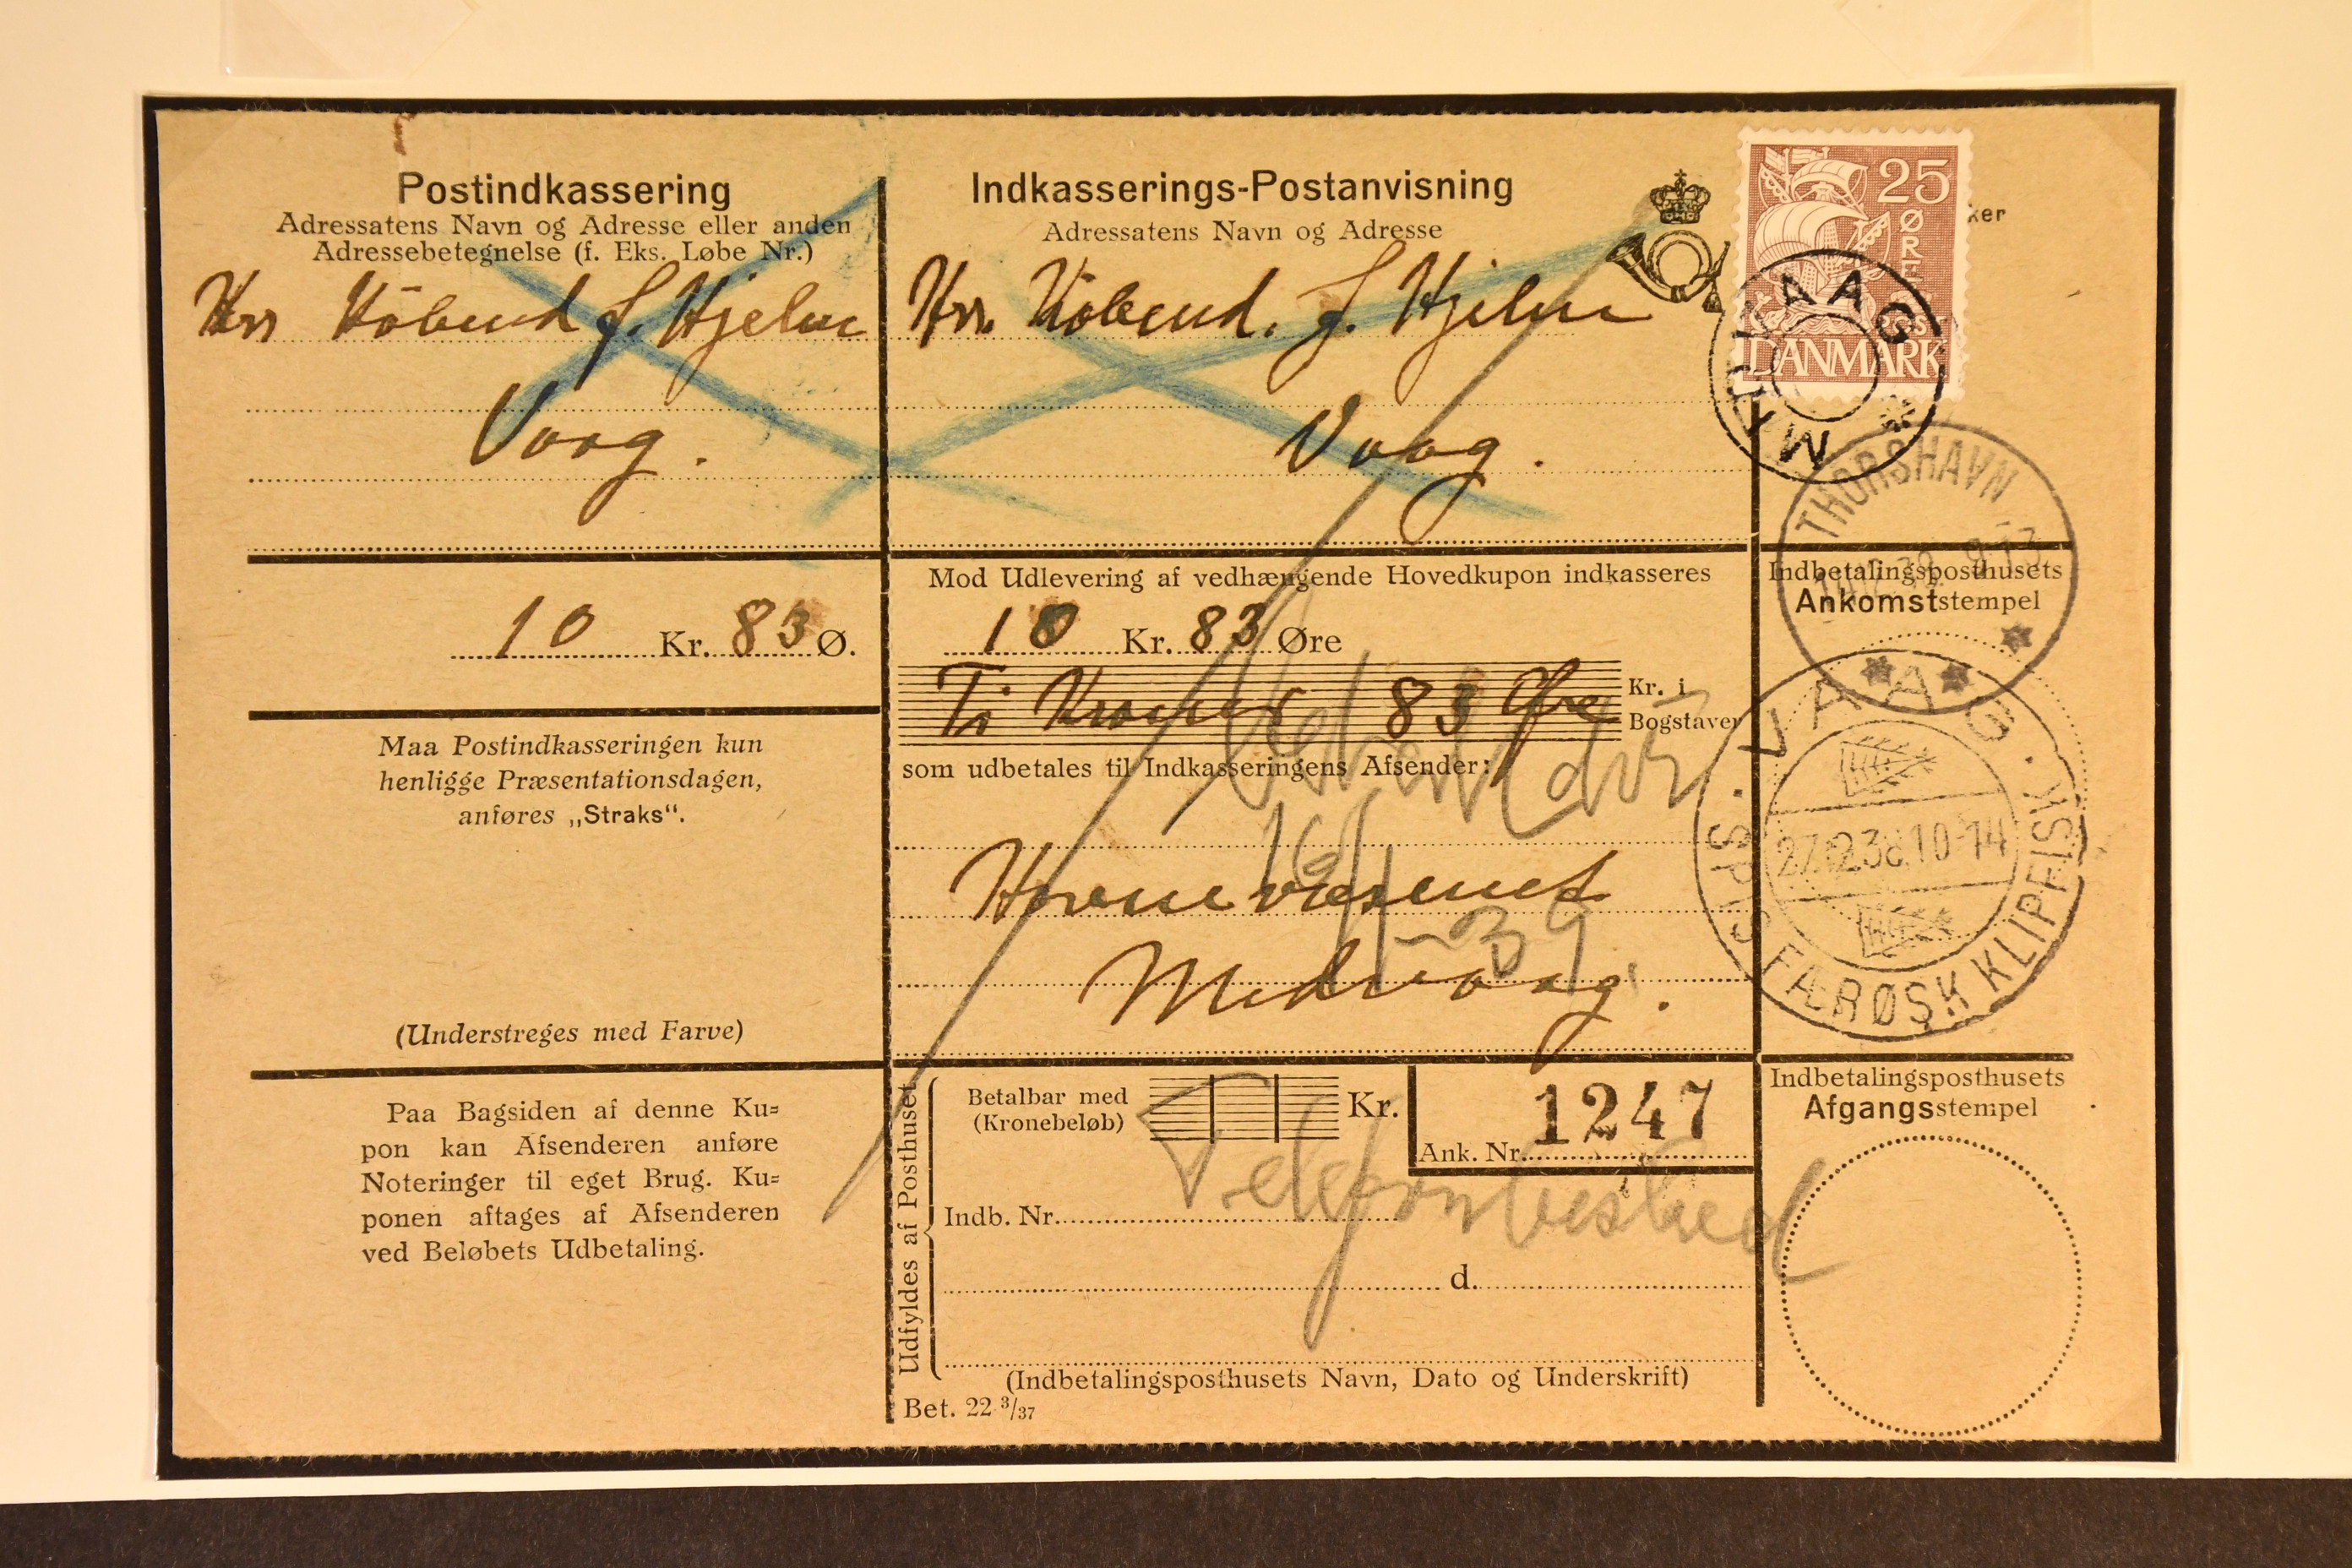 Postindkassering
Adressatens Navn og Adresse eller anden
Adressebetegnelse (f. Eks. Løbe Nr.)
Hrr Köbmd J. Hjelm
Vaag.
10 Kr. 83 Ø.
Maa Postindkasseringen kun
henligge Præsentationsdagen,
anføres „Straks“.
(Understreges med Farve)
Paa Bagsiden af denne Ku=
pon kan Afsenderen anføre
Noteringer til eget Brug. Ku=
ponen aftages af Afsenderen
ved Beløbets Udbetaling.
Indkasserings-Postanvisning
Adressatens Navn og Adresse
Hrr. Köbmd. J. Hjelm
Vaag.
Mod Udlevering af vedhængende Hovedkupon indkasseres
10 Kr. 83 Øre
Ti Kroner 83 Øre
Kr. i
Bogstaver
som udbetales til Indkasseringens Afsender:
16/1-39.
Havnevæsenet
Midvaag.
Udfyldes af Posthuset
Betalbar med
(Kronebeløb)
Kr.
Ank. Nr. 1247
Telefonbesked
Indb. Nr.
d.
(Indbetalingsposthusets Navn, Dato og Underskrift)
Bet. 22 3/37
25
ØRE
POST
DANMARK
ker
MIDVAAG
THORSHAVN
Indbetalingsposthusets
Ankomststempel
VAAG
27.12.38.10-14
SPIS FÆRØSK KLIPFISK
Indbetalingsposthusets
Afgangsstempel